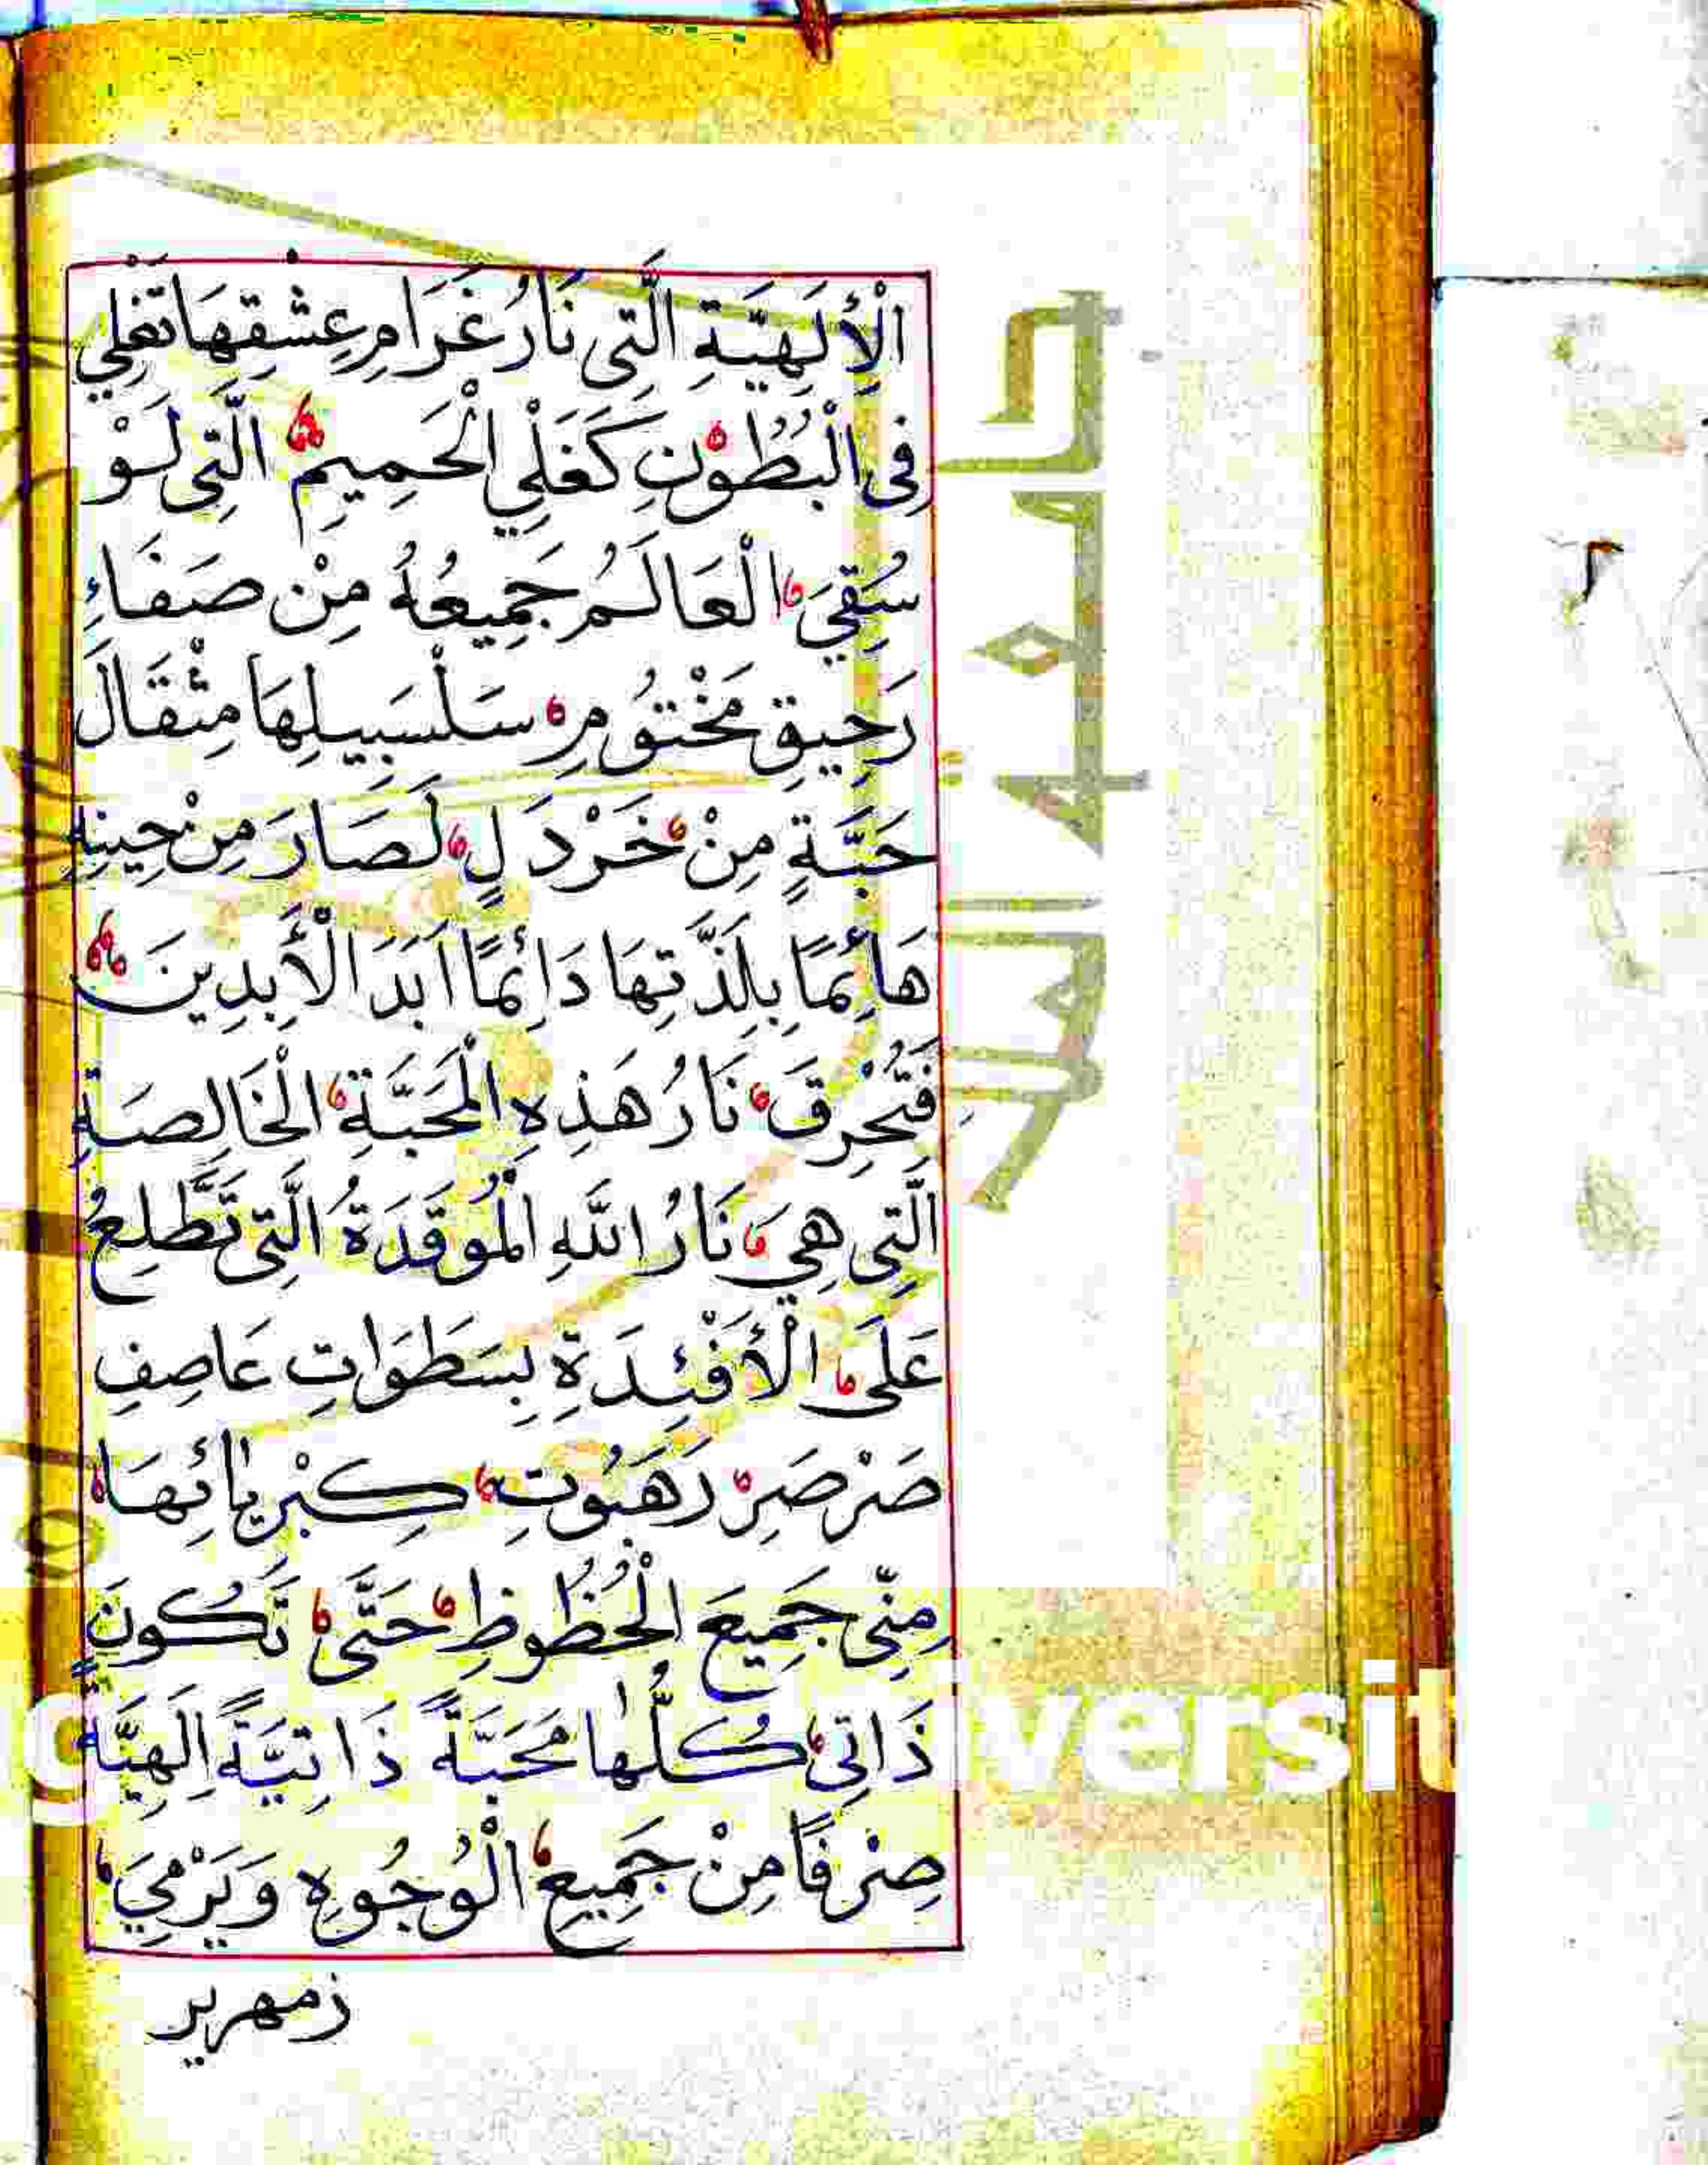 الْأِلَهِيَّةِ الَّتِى نَارُ غَرَامِ عِشْقِهَا تَغْلِي
فِى الْبُطُونِ كَغَلْيِ الْحَمِيمِ الَّتِى لَوْ
سُقِيَ الْعَالَمُ جَمِيعُهُ مِنْ صَفَاءِ
رَحِيقِ مَخْتُومِ سَلْسَبِيلِهَا مِثْقَالَ
حَبَّةٍ مِنْ خَرْدَلٍ لَصَارَ مِنْ حِينِهِ
هَائِمًا بِلَذَّتِهَا دَائِمًا اَبَدَ الْأَبِدِينَ
فَتُحْرِقَ نَارُ هَذِهِ الْمَحَبَّةِ الْخَالِصَةِ
الَّتِى هِيَ نَارُ اللَّهِ الْمُوقَدَةُ الَّتِى تَطَّلِعُ
عَلَى الْأَفْئِدَةِ بِسَطَوَاتِ عَاصِفِ
صَرْصَرِ رَهَبُوتِ كِبْرِيَائِهَا
مِنِّى جَمِيعَ الْحُظُوظِ حَتَّى تَكُونَ
ذَاتِى كُلُّهَا مَحَبَّةً ذَاتِيَّةً اِلَهِيَّةً
صِرْفًا مِنْ جَمِيعِ الْوُجُوهِ وَيَرْمِيَ
زمهرير
جامعة الملك
versit